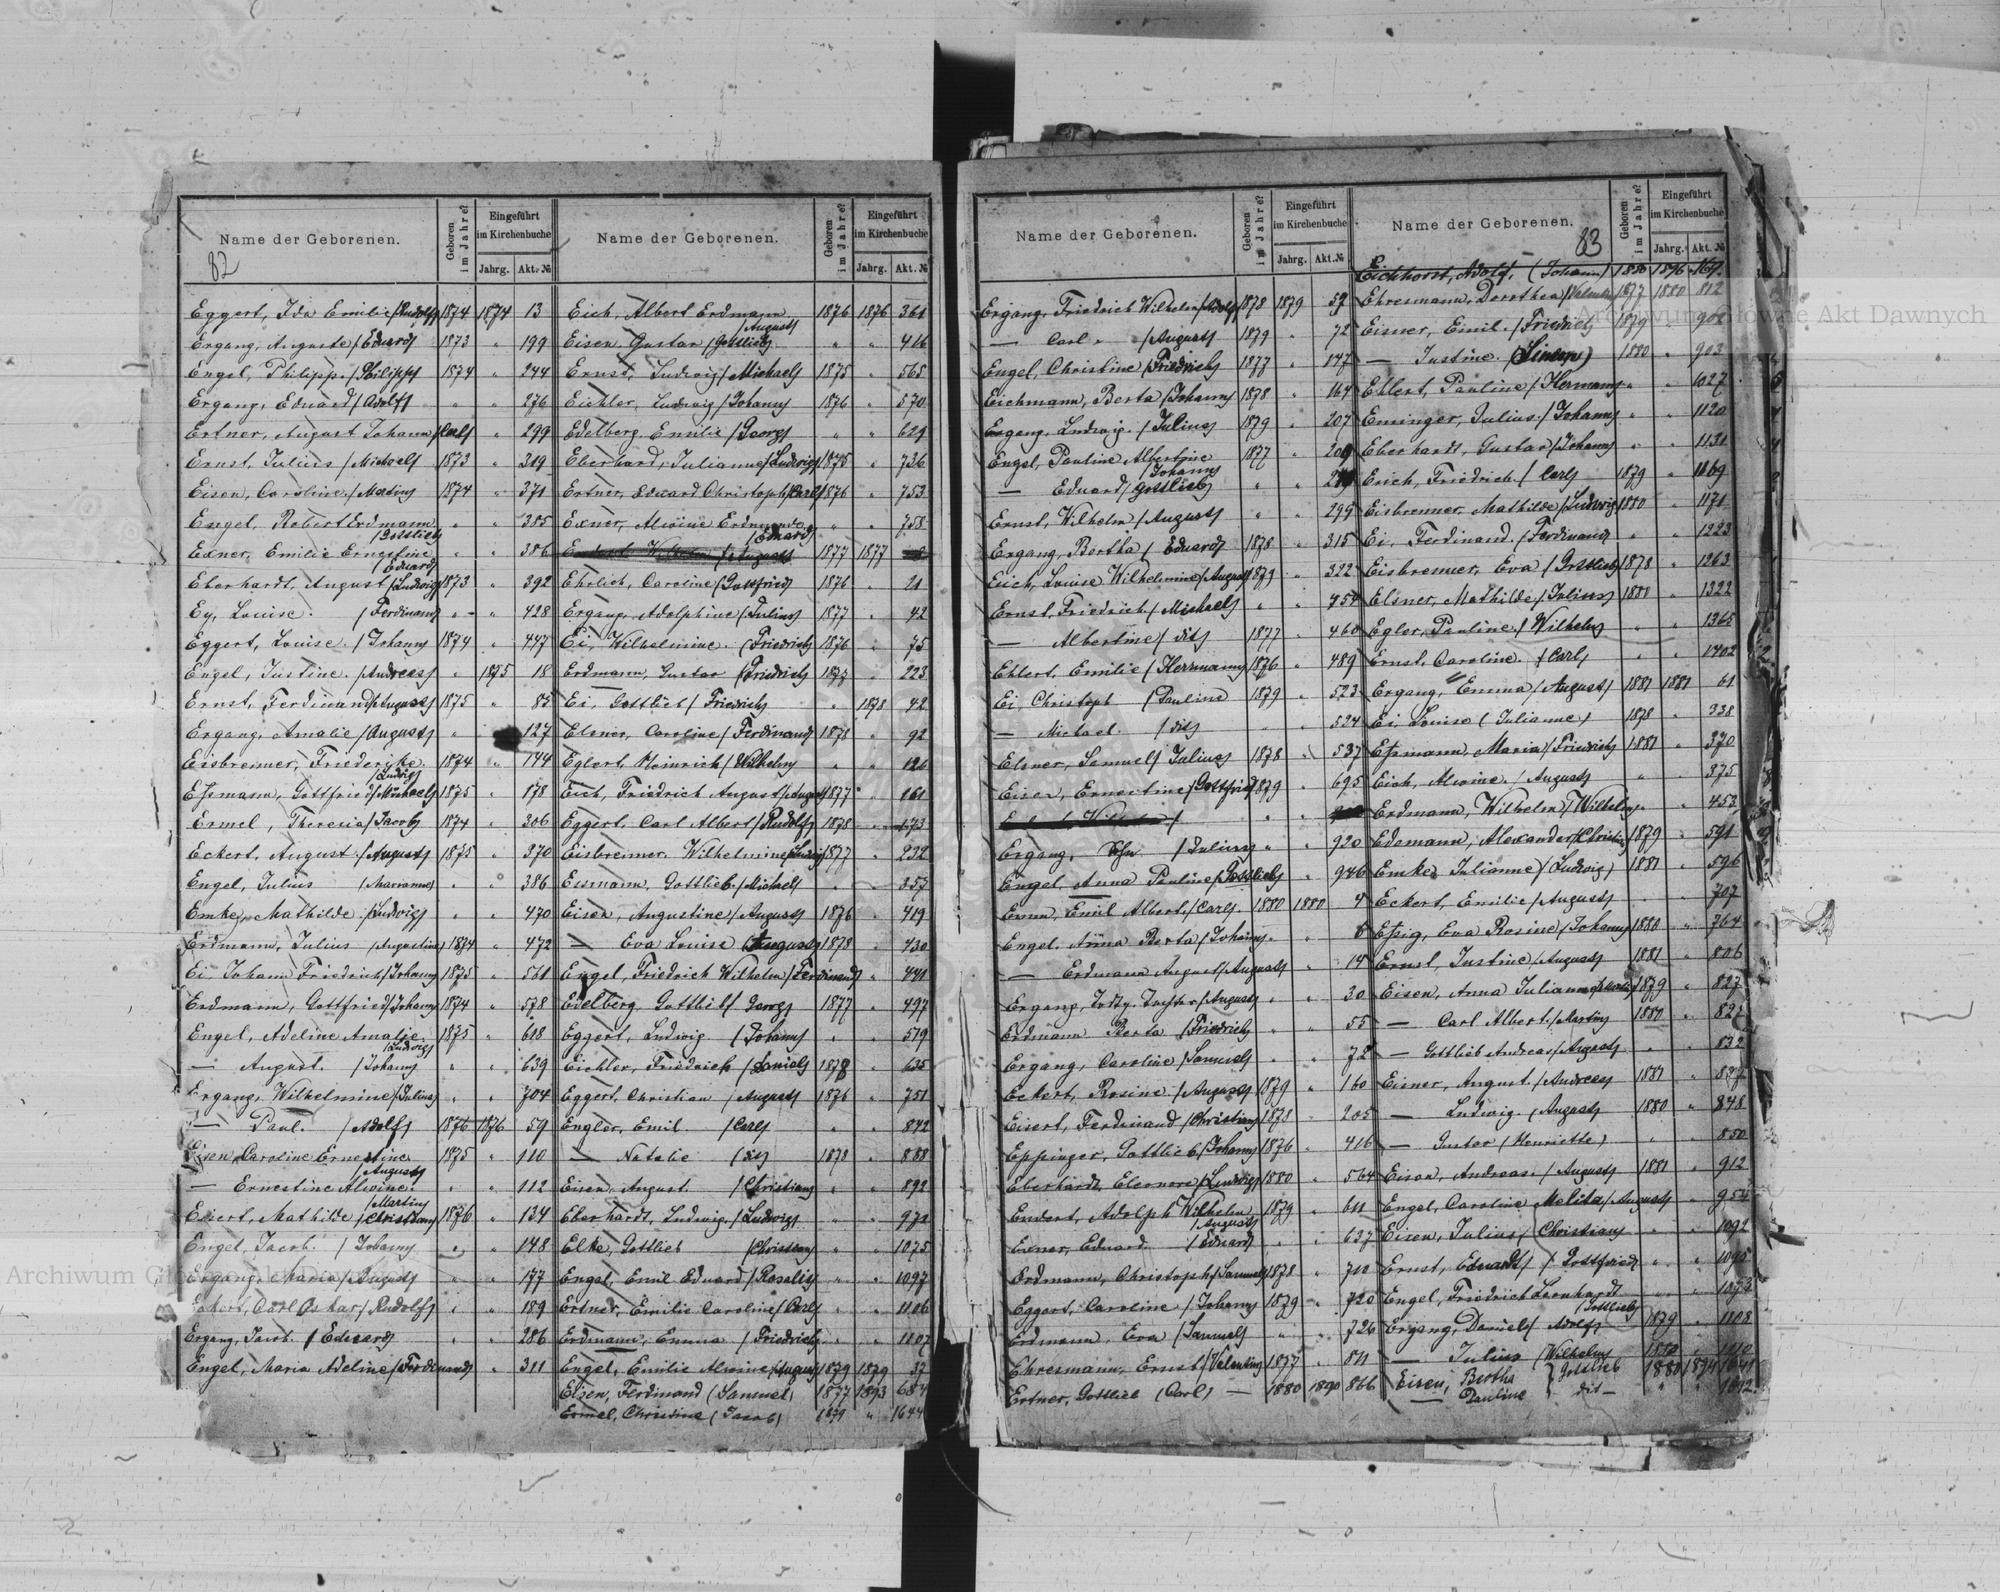 Name der Geborenen.
Geboren im Jahre?
Eingeführt im Kirchenbuche
Jahrg. Akt. №
82
Eggert, Ida Emilie (Rudolf) 1874 1874 13
Ergang, Auguste (Eduard) 1873 " 199
Engel, Philipp. (Philipp) 1874 " 244
Ergang, Eduard (Adolf) " " 276
Ertner, August Johann (Carl) " " 299
Ernst, Julius (Michael) 1873 " 319
Eisen, Caroline. (Martin) 1874 " 371
Engel, Robert Erdmann (Gottlieb) " " 385
Exner, Emilie Ernestine (Eduard) " " 386
Eberhardt, August (Ludwig) 1873 " 392
Ey, Louise. (Ferdinand) " " 428
Eggert, Louise. (Johann) 1874 " 447
Engel, Justine. (Andreas) " 1875 18
Ernst, Ferdinand (August) 1875 " 85
Ergang, Amalie (August) " " 127
Eisbrenner, Friederike. (Ludwig) 1874 " 144
Eßmann, Gottfried (Michael) 1875 " 178
Ermel, Theresia (Jacob) 1874 " 306
Eckert, August. (August) 1875 " 370
Engel, Julius (Marianne) " " 386
Emke, Mathilde. (Ludwig) " " 470
Erdmann, Julius (Augustine) 1874 " 472
Ei Johann Friedrich (Johann) 1875 " 561
Erdmann, Gottfried (Johann) 1874 " 578
Engel, Adeline Amalie. (Ludwig) 1875 " 618
— August. (Johann) " " 639
Ergang, Wilhelmine (Julius) " " 704
— Paul. (Adolf) 1876 1876 59
Eisen Caroline Ernestine (August) 1875 " 110
— Ernestine Alwine. (Martin) " " 112
Eisert, Mathilde (Christian) 1876 " 134
Engel, Jacob. (Johann) " " 148
Ergang, Maria (August) " " 177
Eckert, Carl Oskar (Rudolf) " " 189
Ergang, Jacob. (Eduard) " " 286
Engel, Maria Adeline (Ferdinand) " 311
Name der Geborenen.
Geboren im Jahre?
Eingeführt im Kirchenbuche
Jahrg. Akt. №
Eich, Albert Erdmann (August) 1876 1876 361
Eisen, Gustav (Gottlieb) " " 416
Ernst, Ludwig (Michael) 1875 " 565
Eichler, Ludwig (Johann) 1876 " 570
Edelberg, Emilie (Georg) " " 629
Eberhard, Julianne (Ludwig) 1875 " 736
Ertner, Eduard Christoph (Carl) 1876 " 753
Exner, Alwine Erdmunde (Eduard) " " 758
1877 1877
Ehrlich, Caroline (Gottfried) 1876 " 21
Ergang, Adolphine (Julius) 1877 " 42
Ei, Wilhelmine. (Friedrich) 1876 " 75
Erdmann, Gustav (Friedrich) 1877 " 223
Ei, Gottlieb (Friedrich) " 1878 42
Elsner, Caroline (Ferdinand) 1878 " 92
Eglert, Heinrich (Wilhelm) " " 126
Eich, Friedrich August (August) 1877 " 161
Eggert, Carl Albert (Rudolf) 1878 " 173
Eisbrenner, Wilhelmine (Ludwig) 1877 " 232
Essmann, Gottlieb. (Michael) " " 357
Eisen, Augustine (August) 1876 " 419
— Eva Louise (August) 1878 " 430
Engel, Friedrich Wilhelm (Ferdinand) " 441
Edelberg, Gottlieb (Georg) 1877 " 497
Eggert, Ludwig (Johann) " " 519
Eichler, Friedrich (Daniel) 1878 " 635
Eggert, Christian (August) 1876 " 751
Engler, Emil. (Carl) " " 842
— Natalie (dit) 1878 " 888
Eisen, August. (Christian) " " 892
Eberhardt, Ludwig. (Ludwig) " " 971
Elke, Gottlieb (Christian) " " 1075
Engel, Emil Eduard (Rosalie) " " 1097
Ertner, Emilie Caroline (Carl) " " 1106
Erdmann, Emma (Friedrich) " " 1107
Engel, Emilie Alwine (August) 1879 1879 37
Eisen, Ferdinand (Samuel) 1877 1893 684
Ermel, Christine (Jacob) 1879 " 1644
Name der Geborenen.
Geboren im Jahre?
Eingeführt im Kirchenbuche
Jahrg. Akt. №
Ergang, Friedrich Wilhelm (Adolf) 1878 1879 52
— Carl " (August) 1879 " 72
Engel, Christine (Friedrich) 1877 " 147
Eichmann, Berta (Johann) 1878 " 164
Ergang, Ludwig. (Julius) 1879 " 207
Engel, Pauline Albertine (Johann) 1877 " 209
— Eduard (Gottlieb) " "
Ernst, Wilhelm (August) " " 299
Ergang, Bertha (Eduard) 1878 " 315
Eich, Louise Wilhelmine (August) 1879 " 322
Ernst, Friedrich (Michael) " " 454
— Albertine (dit) 1877 " 460
Ehlert, Emilie (Herrmann) 1876 " 489
Ei, Christoph (Pauline) 1879 " 523
— Michael. (dit) " " 524
Elsner, Samuel (Julius) 1878 " 537
Eisen, Ernestine (Gottfried) 1879 " 695
Ergang, Sohn (Julius) " " 920
Engel, Anna Pauline (Gottlieb) " " 946
Emil Albert. (Carl) 1880 1880 4
Engel, Anna Berta (Johann) " " 8
— Erdmann August (August) " " 14
Ergang, (August) " " 30
Erdmann Berta (Friedrich) " " 55
Ergang, Caroline (Samuel) " " 72
Eckert, Rosine. (August) 1879 " 160
Eisert, Ferdinand (Christian) 1878 " 205
Eppinger, Gottlieb (Johann) 1876 " 416
Eberhardt, Eleonore (Ludwig) 1880 " 564
Endert, Adolph Wilhelm (August) 1879 " 611
Exner, Eduard (Eduard) " " 637
Erdmann, Christoph (Samuel) 1878 " 712
Eggert, Caroline (Johann) 1879 " 720
Erdmann, Eva (Samuel) " " 726
Ehresmann, Ernst (Valentin) 1877 " 811
Ertner, Gottlieb (Carl) — 1880 1890 866
Name der Geborenen.
83
Geboren im Jahre?
Eingeführt im Kirchenbuche
Jahrg. Akt. №
Eichhorst, Adolf. (Johann) 1880 1896 169
Ehresmann, Dorothea (Valentin) 1877 1880 812
Eisner, Emil. (Friedrich) 1879 " 902
— Justine (Simon) 1880 " 903
Ehlert, Pauline (Hermann) " " 1027
Eminger, Julius. (Johann) " " 1120
Eberhardt, Gustav (Johann) " " 1131
Erich, Friedrich (Carl) 1879 " 1169
Eisbrenner, Mathilde (Ludwig) 1880 " 1171
Ei, Ferdinand. (Ferdinand) " " 1223
Eisbrenner, Eva (Gottlieb) 1878 " 1263
Elsner, Mathilde (Julius) 1880 " 1322
Egler, Pauline (Wilhelm) " " 1365
Ernst, Caroline. (Carl) " " 1402
Ergang, Emma (August) 1881 1881 61
Ei Louise (Julianne) 1878 " 338
Eßmann, Maria (Friedrich) 1881 " 370
Eich, Alwine. (August) " " 375
Erdmann, Wilhelm (Wilhelm) " " 453
Edemann, Alexander (Christian) 1879 " 591
Emke, Julianne (Ludwig) 1881 " 596
Eckert, Emilie (August) " " 707
Eßig, Eva Rosine (Johann) 1880 " 764
Ernst, Justine (August) 1881 " 806
Eisen, Anna Julianne 1879 " 827
— Carl Albert. (Martin) 1880 " 82
— Gottlieb Andreas (August) " " 832
Eisner, August. (Andreas) 1881 " 837
— Ludwig. (August) 1880 " 848
— Gustav (Henriette) " " 850
Eisen, Andreas. (August) 1881 " 912
Engel, Caroline Melita (August) " 954
Eisen, Julius (Christian) " " 1092
Ernst, Eduard (Gottfried) " " 1095
Engel, Friedrich Leonhardt (Gottlieb) " "
Ergang, Daniel (Adolf) 1879 " 1108
— Julius (Wilhelm) 1880 " 1110
Eisen, Bertha } Gottlieb 1880 1894 1641
— Pauline } dit — " " 1642
Archiwum Główne Akt Dawnych
Archiwum Główne Akt Dawnych